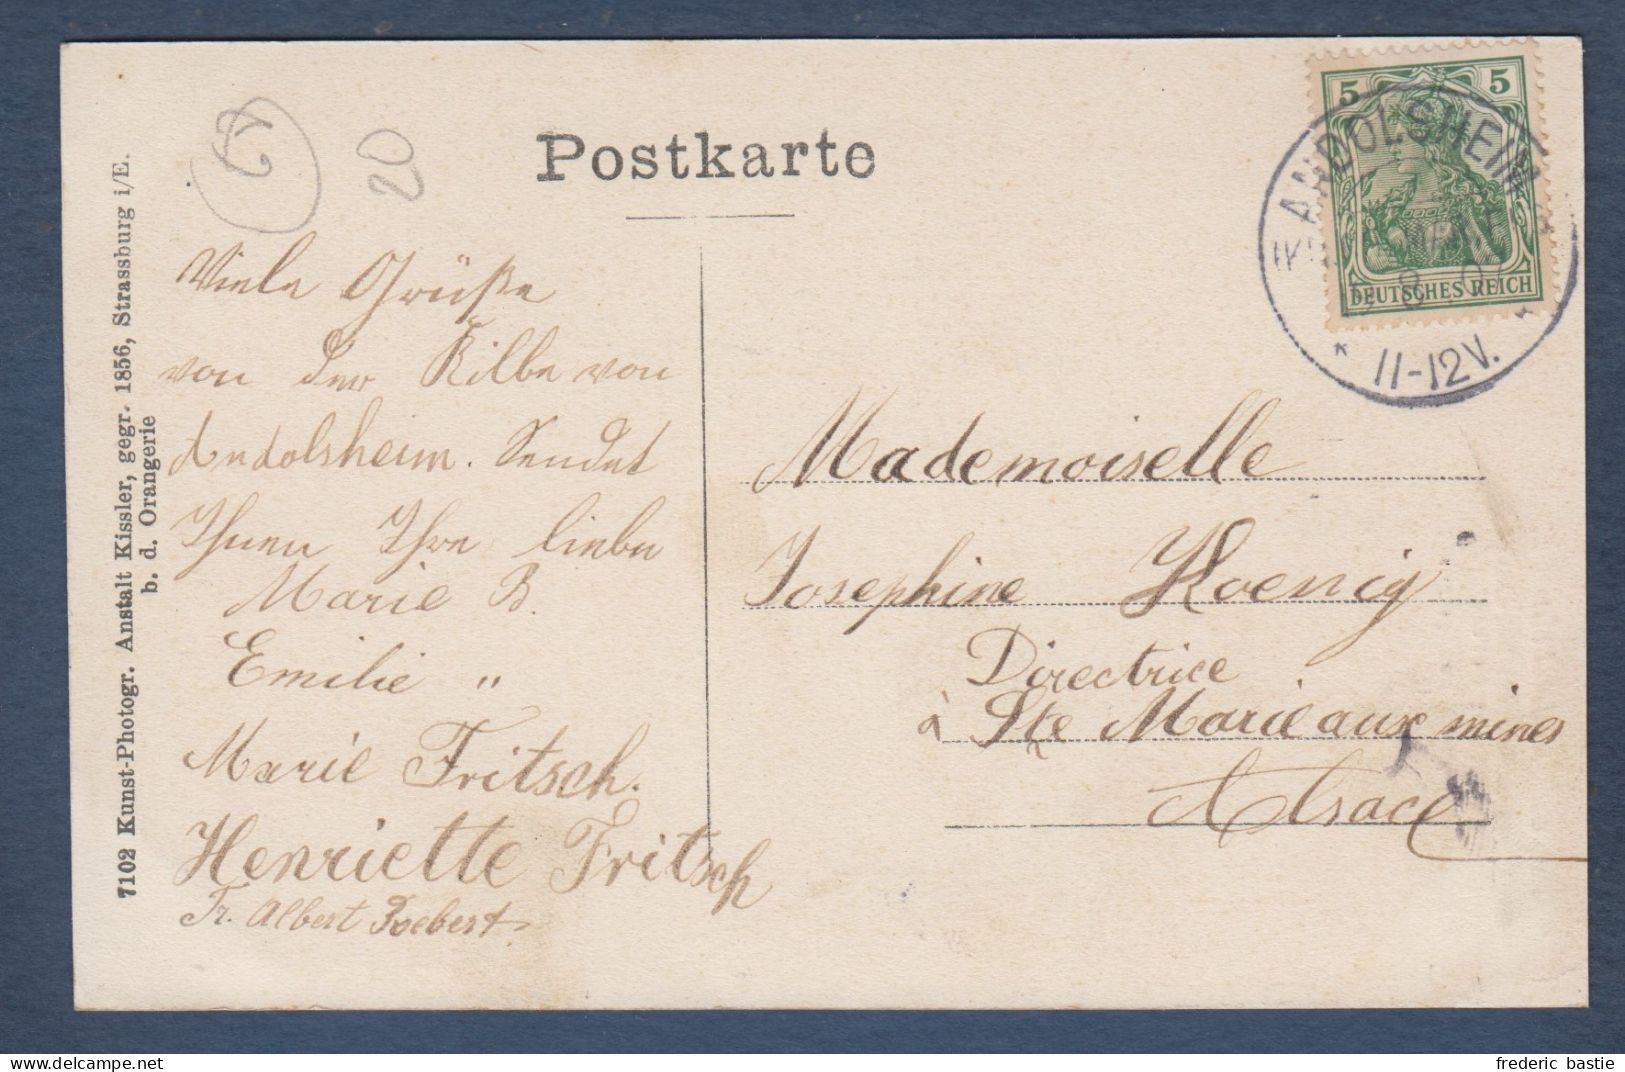 Postkarte
7102 Kunst-Photogr. Anstalt Kissler, gegr. 1856, Strassburg i/E.
b. d. Orangerie
20
Viele Grüße
von der Kilbe von
Andolsheim. Sendet
Ihnen Ihre liebe
Marie B.
Emilie "
Marie Fritsch.
Henriette Fritsch
Fr. Albert
5 5
DEUTSCHES REICH
ANDOLSHEIM
* 11-12V.
Mademoiselle
Josephine Koenig
Directrice
à Ste Marie aux mines
Alsace
frederic bastie
www.delcampe.net